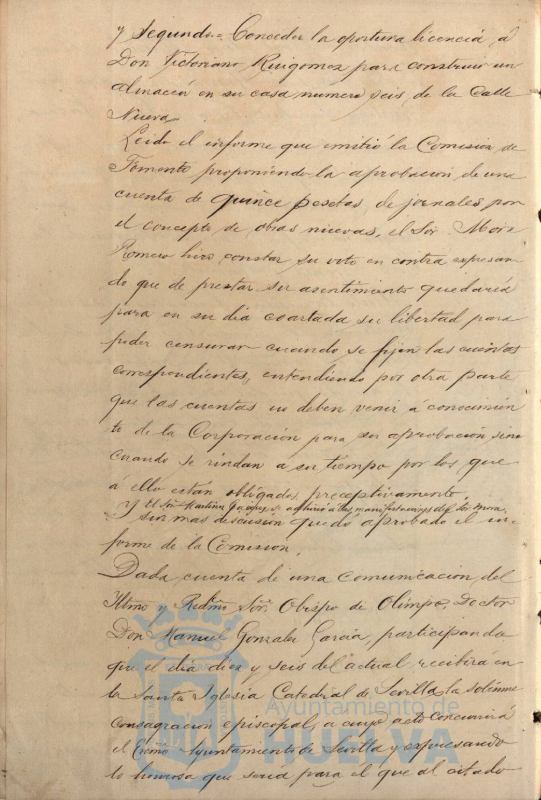 y Segundo = Conceder la oportuna licencia, á
Don Victoriano Ruigomez para construir un
almacén en su casa numero seis de la Calle
Nueva
Leido el informe que emitió la Comision de
Fomento proponiendo la aprobación de una
cuenta de quince pesetas de jornales por
el concepto de obras nuevas, el Sor. Mora
Romero hizo constar su voto en contra expresan
do que de prestar su asentimiento quedaría
para en su dia coartada su libertad para
poder censurar cuando se fijen las cuentas
correspondientes, entendiendo por otra parte
que las cuentas no deben venir á conocimien
to de la Corporación para su aprobación sino
cuando se rindan a su tiempo por los que
a ello están obligados preceptivamente
Y el Sor Martin se adhirió a las manifestaciones del Sor Mora
Y sin mas descusión quedó aprobado el in-
forme de la Comision.
Dada cuenta de una comunicacion del
Iltmo y Redmo Sor. Obispo de Olimpo, Doctor
Don Manuel Gonzalez Garcia, participando
que el dia diez y seis del actual recibirá en
la Santa Iglesia Catedral de Sevilla la solemne
consagracion episcopal, a cuyo acto concurrirá
el Excmo Ayuntamiento de Sevilla y expresando
lo honrosa que seria para el que al citado
Ayuntamiento de
HUELVA